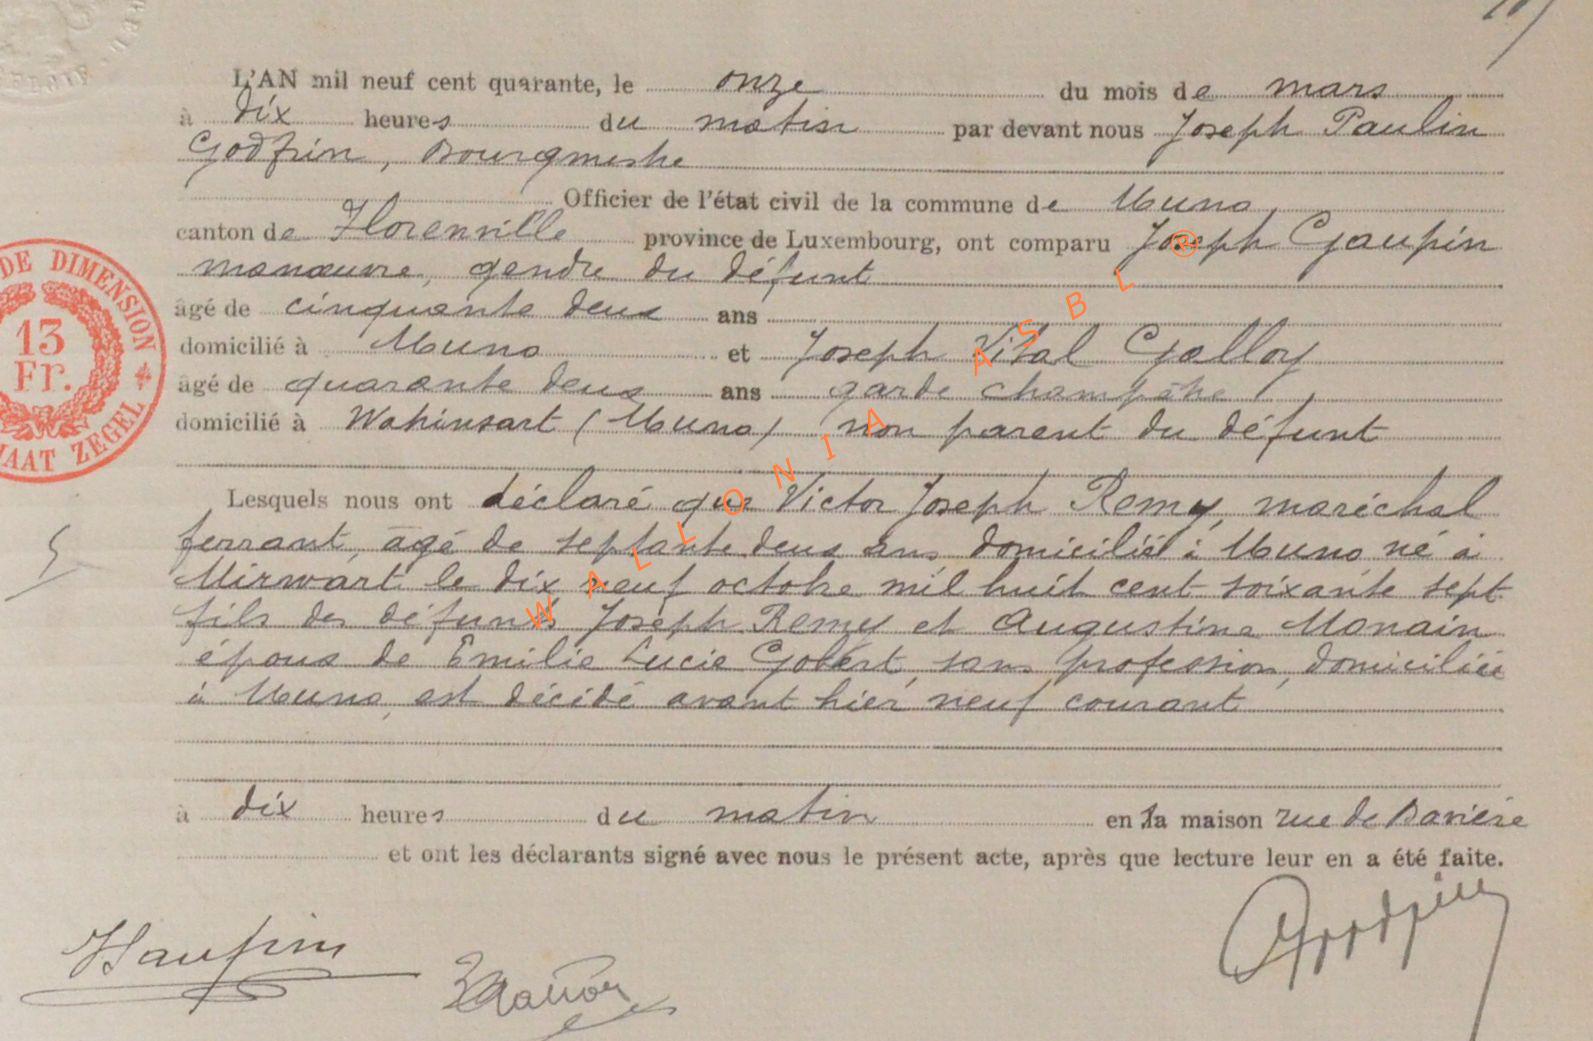 L'AN mil neuf cent quarante, le onze du mois de mars
à dix heures du matin par devant nous Joseph Paulin
Godfrin, Bourgmestre
Officier de l'état civil de la commune de Muno
canton de Florenville province de Luxembourg, ont comparu Joseph Gaupin
manœuvre, gendre du défunt
âgé de cinquante deux ans
domicilié à Muno et Joseph Vital Galloy
âgé de quarante deux ans garde champêtre
domicilié à Wahinsart (Muno) non parent du défunt
Lesquels nous ont déclaré que Victor Joseph Remy, maréchal
ferrant, âgé de septante deux ans domicilié à Muno né à
Mirwart le dix neuf octobre mil huit cent soixante sept
fils des défunts Joseph Remy et Augustine Monain
époux de Emilie Lucie Gobert, sans profession, domiciliée
à Muno, est décédé avant hier neuf courant
à dix heures du matin en la maison rue de Bavière
et ont les déclarants signé avec nous le présent acte, après que lecture leur en a été faite.
DE DIMENSION
13
Fr.
MAAT ZEGEL
WALLONIA ASBL ®